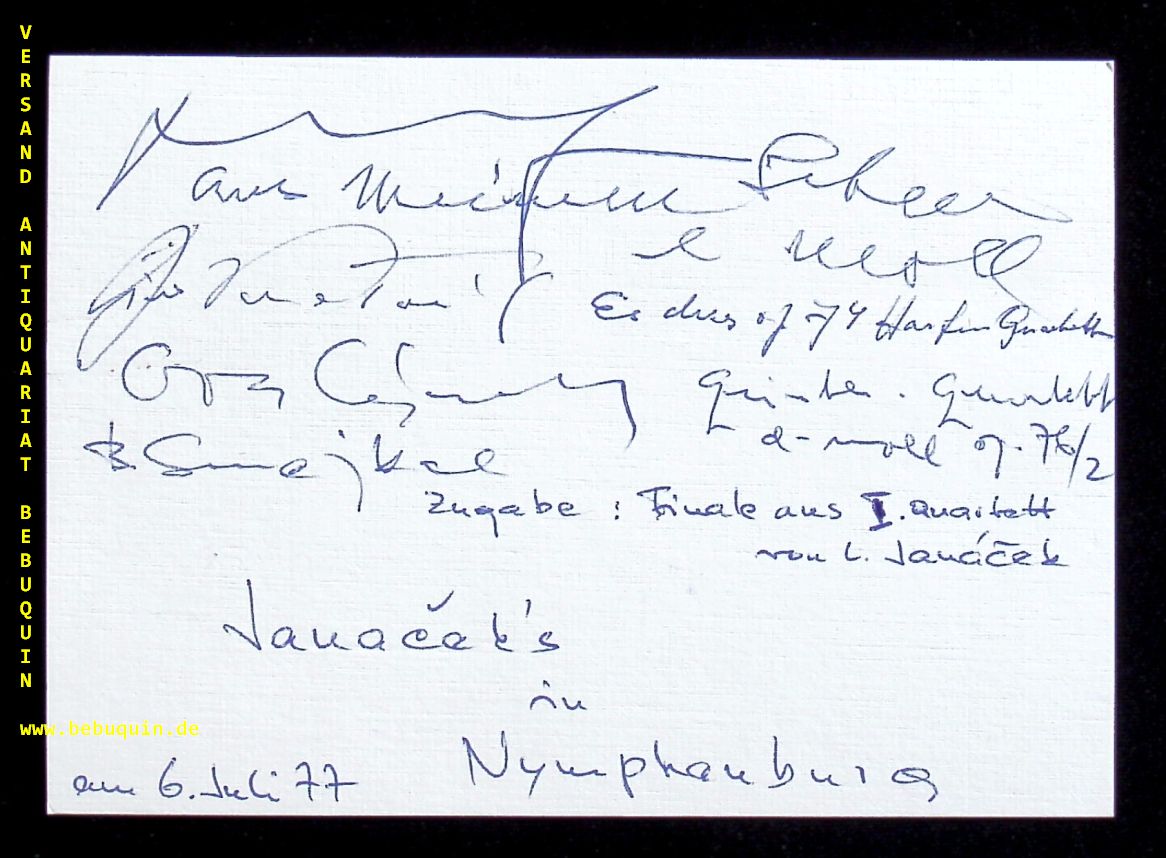 VERSAND ANTIQUARIAT BEBUQUIN
www.bebuquin.de
aus Meinem Leben
e Moll
Es dur op 74 Harfen Quartett
Quinten. Quartett
d-moll op. 76/2
B. Smejkal
Zugabe : Finale aus I. Quartett
von L. Janáček
Janaček's
in
Nymphenburg
am 6. Juli 77